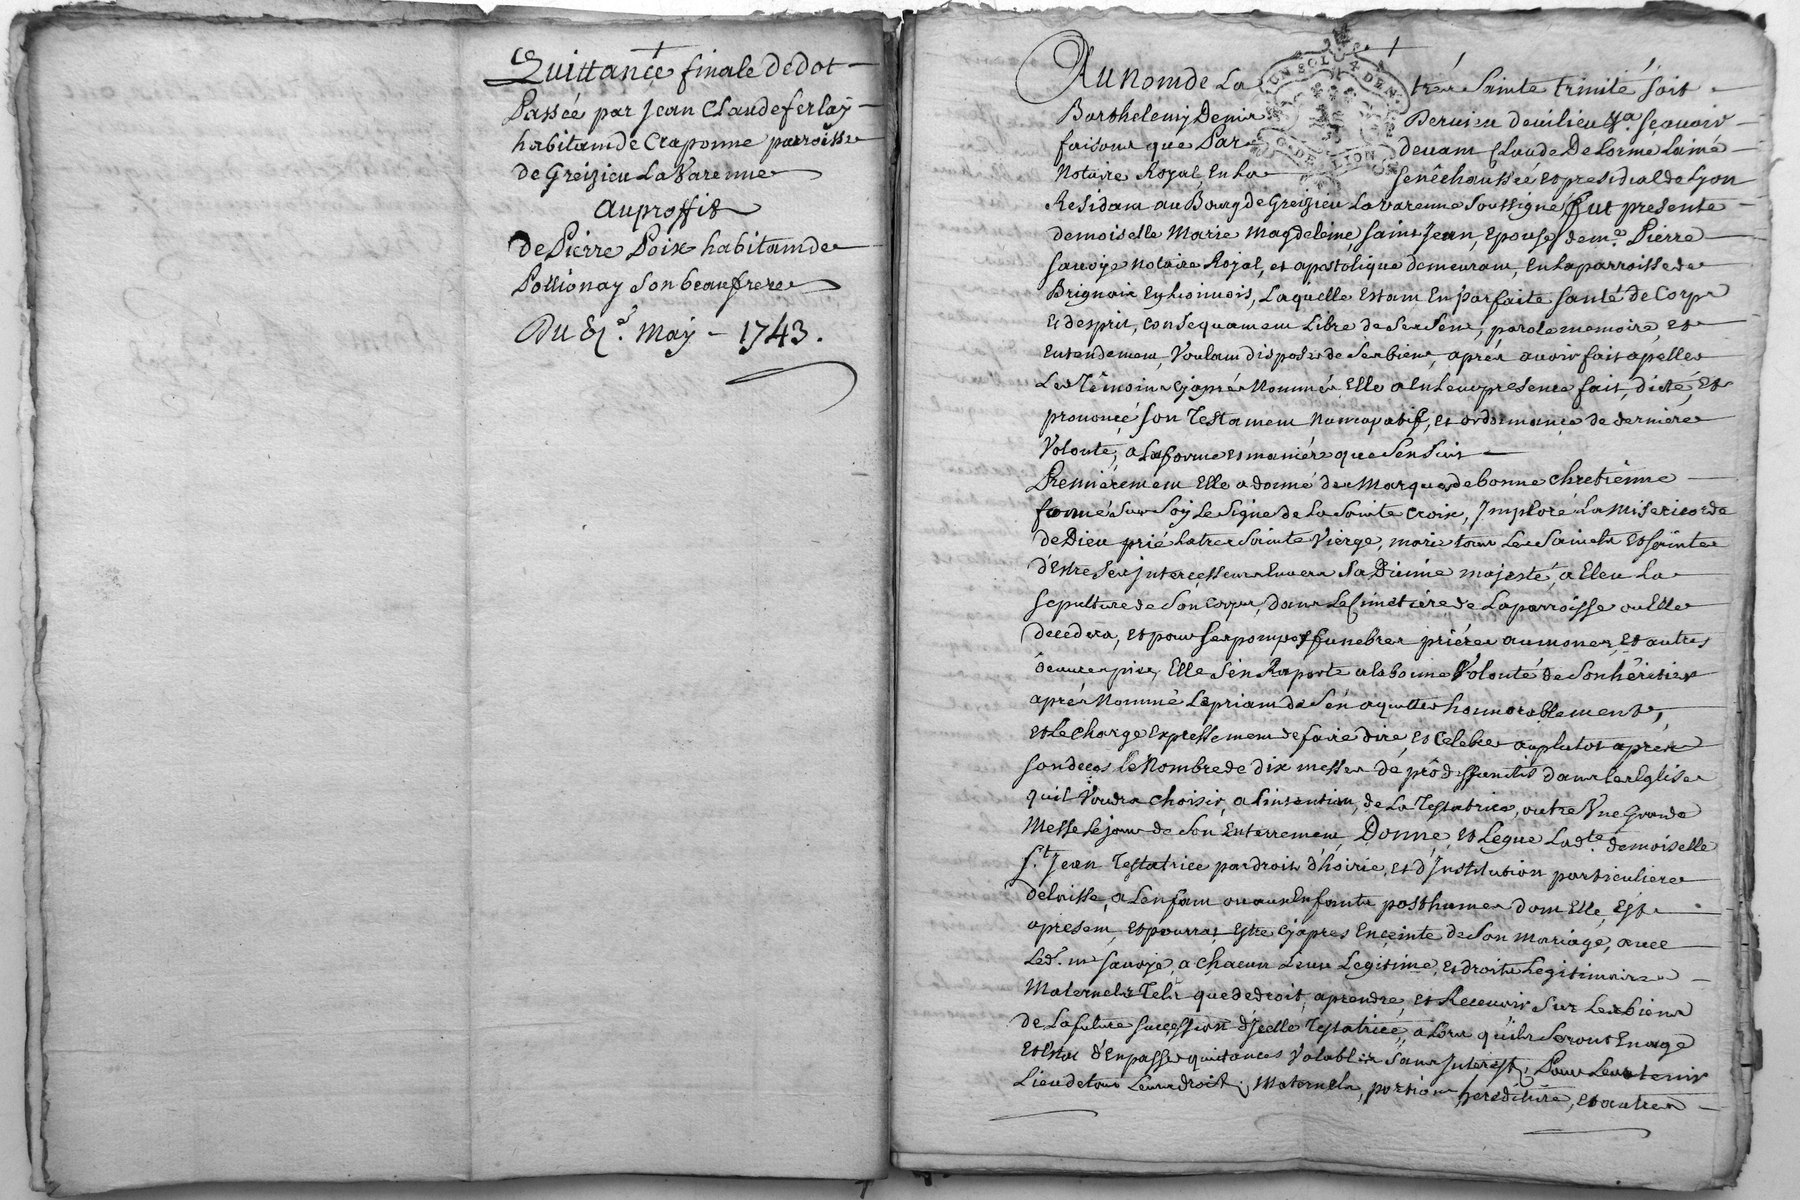 Quittance finale de dot
Passée par Jean Claude ferlay
habitant de Craponne parroisse
de Greizieu La Varenne
au proffit
de Pierre Poix habitant de
Pollionay Son beaufrere
Du 2e. May - 1743.
Au nom de La très Sainte trinité soit
Barthelemy Deni
faisons que Par devant Claude DeLorme Lainé
Notaire Royal En La senêchaussée et presidial de Lyon
Residant au Bourg de Greizieu La varenne Soussigné fut presente
demoiselle Marie Magdeleine Saint Jean, Epouse de me. Pierre
Savoye notaire Royal, et apostolique demeurant, En La parroisse de
Brignais En Lionnois, Laquelle Estant En parfaite santé de Corps
Et desprit, Consequament Libre de Ses Sens, parole memoire, et
Entendement, Voulant disposer de Ses biens, aprés avoir fait apeller
Les Têmoins Cy aprés Nommés Elle a En Leur presence fait, dicté, Et
prononcé Son Testament Nuncupatif, et ordonnance de derniere
Volonté, a La forme et maniére que Sensuit
Premiérement Elle a donné des Marques de bonne chretiênne
formé Sur Soy Le Signe de La Sainte Croix, Imploré La Misericorde
de Dieu prié La tres Sainte Vierge, marie tous Les Saincts Et Saintes
d'Estre Ses Intercesseurs Envers Sa Divine majesté, a Eleu La
Sepulture de Son Corps, dans Le Cimetiére de La parroisse ou Elle
decedera, et pour Ses pompes funebres priéres aumones, Et autres
Elle S'en Raporte a la bonne Volonté de Son hêritier
aprés Nommé Le priant de S'en aquitter honnorablement,
et Le charge Expressement de faire dire, et Celebrer au plutot aprés
Son deces le Nombre de dix messes de prô deffunctis dans Les Eglises
quil Voudra choisir, a L'intention, de La Testatrice, outre Une Grande
Messe Le jour de Son Enterrement, Donne, et Legue Ladte. demoiselle
St. Jean Testatrice par droit d'hoirie, et d'Institution particuliere
delaisse, a Lenfant ou aux Enfants posthumes dont Elle, Est
apresent, et pourrat Estre Cy apres Enceinte de Son mariage, avec
Led. me Savoye, a chacun Leur Legitime, et droits Legitimaires
Maternels Tels que de droit, aprendre, et Recevoir Sur Les biens
de La future succession d'Jcelle Testatrice, a Lors quils Seront En age
Et Etat d'En passer quittances Valables Sans Interest, Pour Leur tenir
Lieu de tous Leurs droits, Maternels, portion, hereditaire, et autres